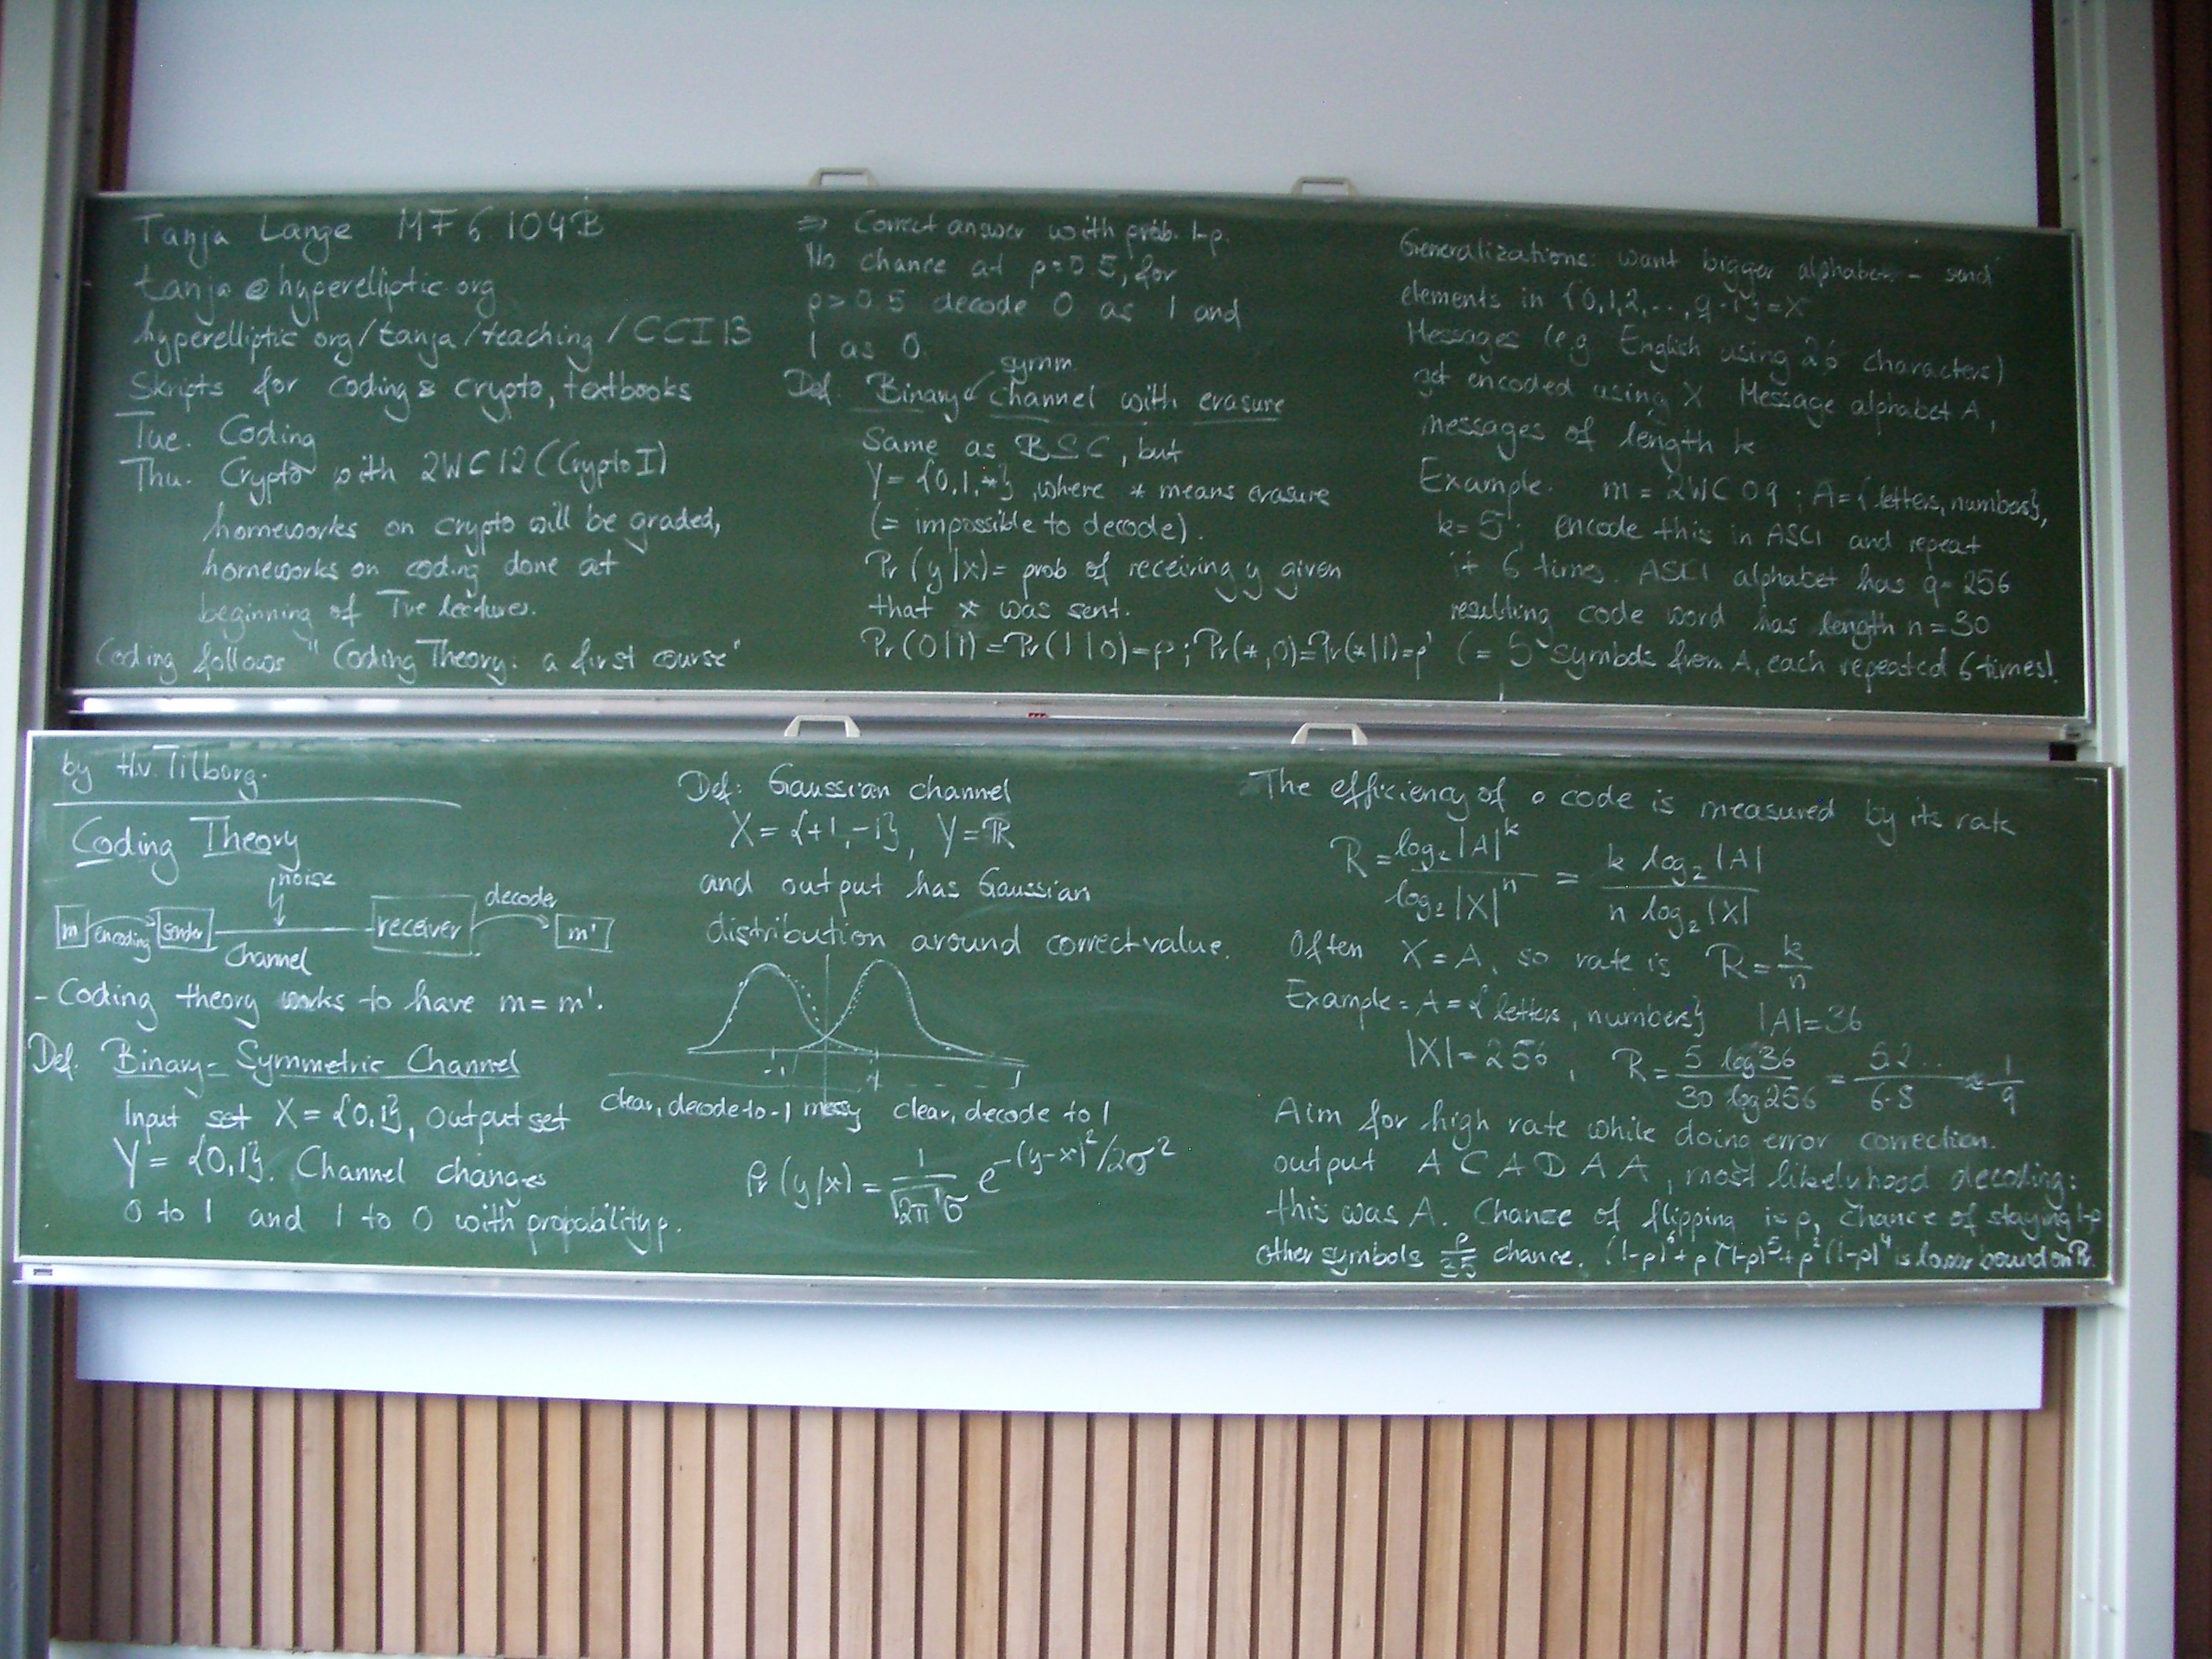 Tanja Lange MF 6.104B
tanja@hyperelliptic.org
hyperelliptic.org/tanja/teaching/CCI13
Skripts for coding & crypto, textbooks
Tue. Coding
Thu. Crypto with 2WC12 (Crypto I)
homeworks on crypto will be graded,
homeworks on coding done at
beginning of Tue lectures.
Coding follows "Coding Theory: a first course"
by H.v. Tilborg.
Coding Theory
noise
m encoding sender channel receiver decoder m'
- Coding theory works to have m = m'.
Def. Binary-Symmetric Channel
Input set X = {0,1}, output set
Y = {0,1}. Channel changes
0 to 1 and 1 to 0 with propability p.
⇒ Correct answer with prob. 1-p.
No chance at p=0.5, for
p>0.5 decode 0 as 1 and
1 as 0.
symm
Def. Binary channel with erasure
Same as BSC, but
Y = {0,1,*}, where * means erasure
(= impossible to decode).
Pr(y|x) = prob of receiving y given
that x was sent.
Pr(0|1) = Pr(1|0) = p; Pr(*,0) = Pr(*|1) = p'
Def: Gaussian channel
X = {+1,-1}, Y = ℝ
and output has Gaussian
distribution around correct value.
-1 1
clear, decode to -1 messy clear, decode to 1
Pr(y|x) = 1/(√2π σ) e^(-(y-x)²/2σ²)
Generalizations: want bigger alphabet - send
elements in {0,1,2,..,q-1} = X
Messages (e.g. English using 26 characters)
get encoded using X Message alphabet A,
messages of length k
Example: m = 2WC09; A = {letters, numbers},
k=5; encode this in ASCI and repeat
it 6 times. ASCI alphabet has q=256
resulting code word has length n=30
(= 5 symbols from A, each repeated 6 times).
The efficiency of a code is measured by its rate
R = log₂|A|^k / log₂|X|^n = k log₂|A| / n log₂|X|
Often X = A, so rate is R = k/n
Example: A = {letters, numbers} |A| = 36
|X| = 256, R = 5 log 36 / 30 log 256 = 5.2... / 6·8 ≈ 1/9
Aim for high rate while doing error correction.
output A C A D A A, most likelyhood decoding:
this was A. Chance of flipping is p, chance of staying 1-p
other symbols p/35 chance. (1-p)⁶ + p(1-p)⁵ + p²(1-p)⁴ is lower bound on Pr.